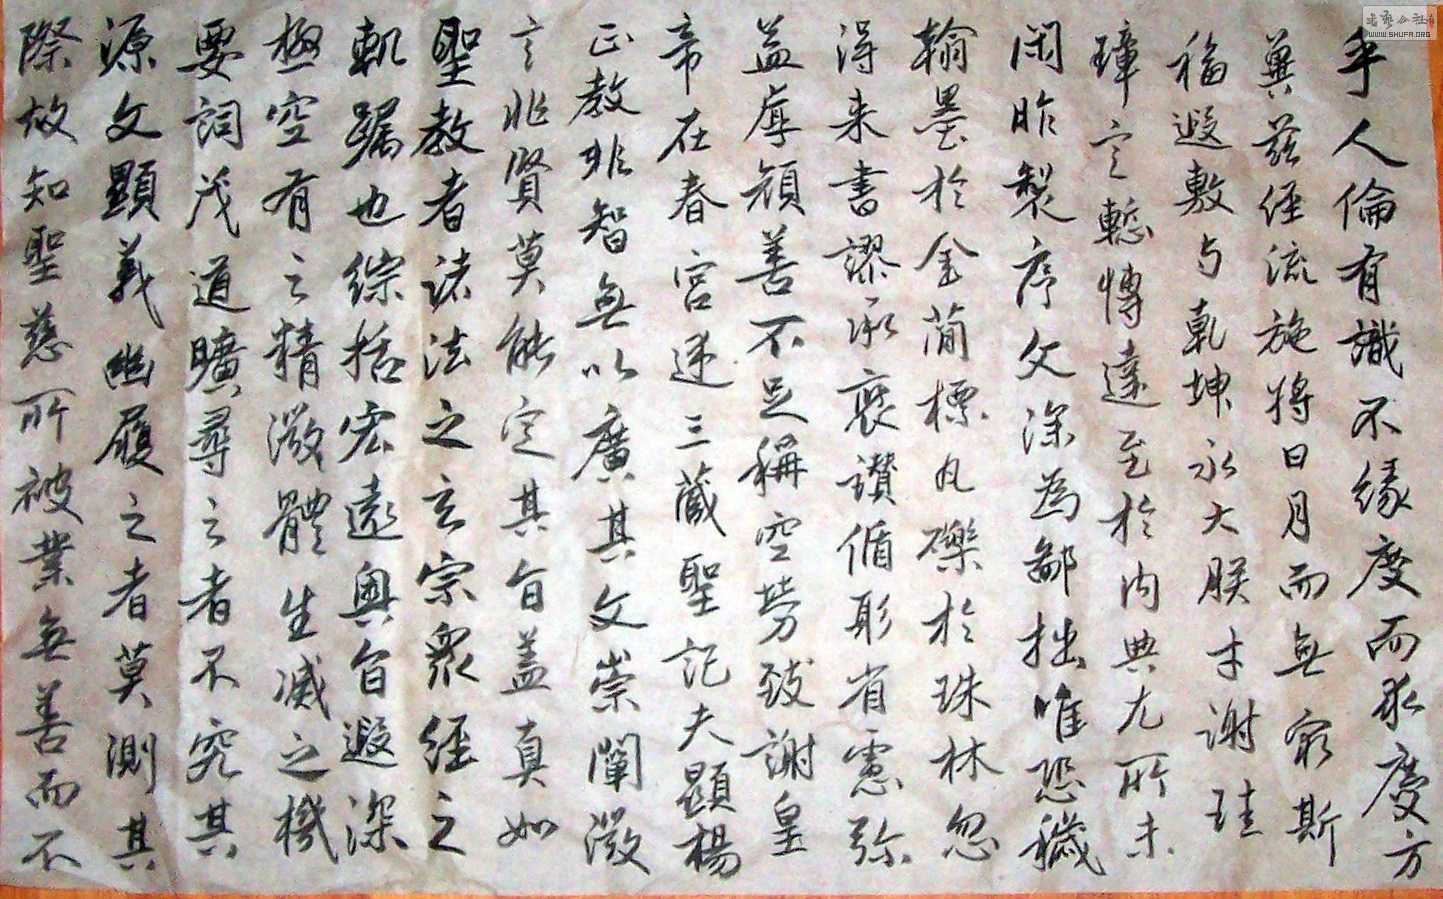 乎人倫有識不緣慶而求慶方
冀茲經流施將日月而無窮斯
福遐敷与乹坤永大朕才謝珪
璋言慙博達至於內典尤所未
閑昨製序文深為鄙拙唯恐穢
翰墨於金簡標瓦礫於珠林忽
得来書謬承褒讃循躬省慮弥
益厚顔善不足稱空勞致謝皇
帝在春宮述三藏聖記夫顯楊
正教非智無以廣其文崇闡微
言非賢莫能定其旨盖真如
聖教者諸法之玄宗衆經之
軌躅也綜括宏遠奧旨遐深
極空有之精微體生滅之機
要詞茂道曠尋之者不究其
源文顯義幽履之者莫測其
際故知聖慈所被業無善而不
书艺公社
WWW.SHUFA.ORG